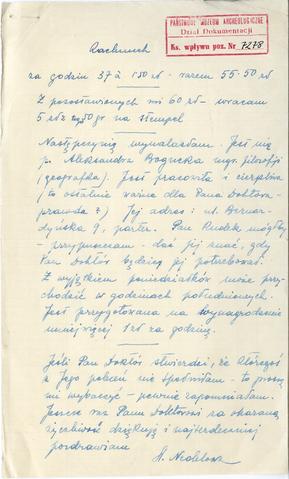 PAŃSTWOWE MUZEUM ARCHEOLOGICZNE
Dział Dokumentacji
Ks. wpływu poz. Nr 7278
Rachunek
za godzin 37 à 1.50 zł - razem 55.50 zł
Z pozostawionych mi 60 zł - wracam
5 zł na stempel
Następczynię wynalazłam. Jest nią
p. Aleksandra mgr. filozofji
(geografka). Jest pracowita i cierpliwa
(to ostatnie ważne dla Pana Doktora -
prawda?) Jej adres: ul. Bernar-
dyńska 9, parter. Pan Rudek mógłby
- przypuszczam - dać jej znać, gdy
Pan Doktór będzie jej potrzebował.
Z wyjątkiem poniedziałków może przy-
chodzić w godzinach południowych.
Jest przygotowana na wynagrodzenie
mniejwięcej 1 zł za godzinę.
Jeśli Pan Doktór stwierdzi, że któregoś
z Jego poleceń nie spełniłam - to proszę
mi wybaczyć - pewnie zapomniałam.
Jeszcze raz Panu Doktorowi za okazaną
życzliwość dziękuję i najserdeczniej
pozdrawiam